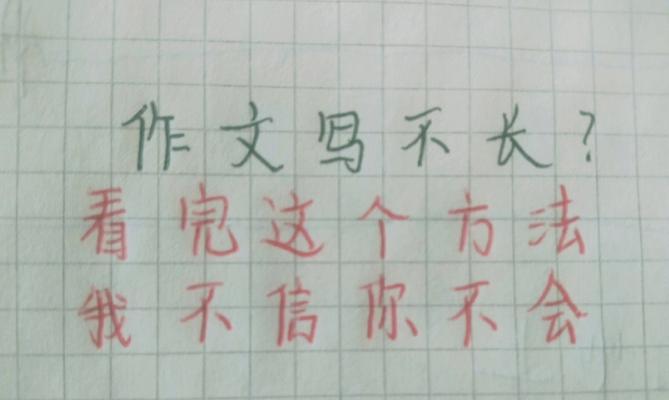 作文写不长？
看完这个方法
我不信你不会